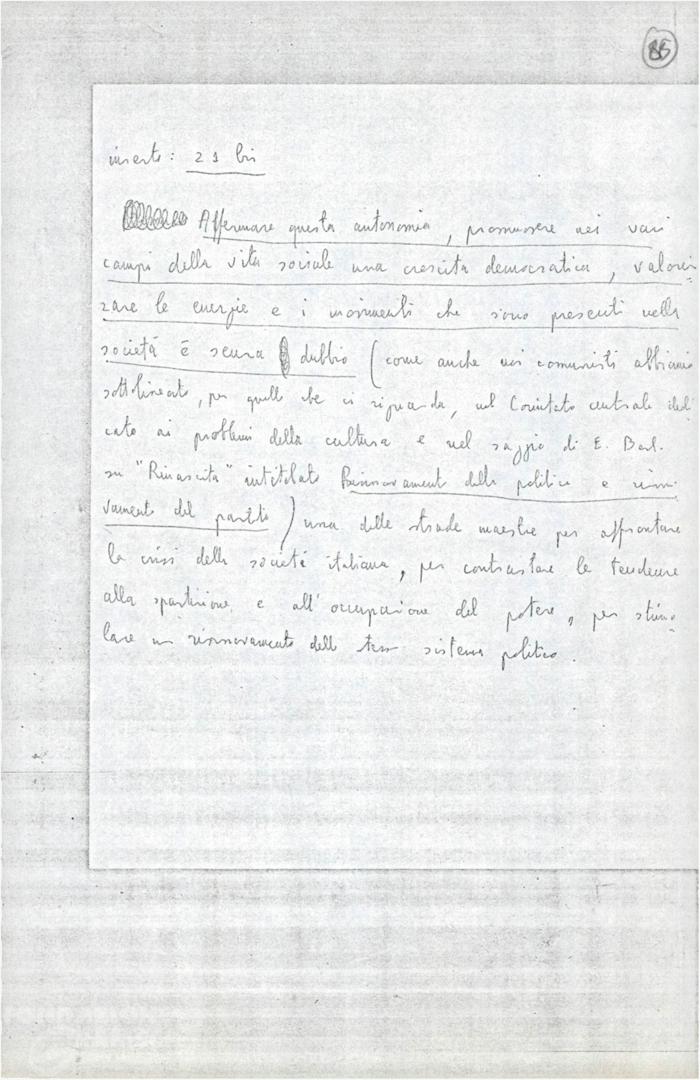 85
inserto: 21 bis
Affermare questa autonomia, promuovere nei vari
campi della vita sociale una crescita democratica, valoriz=
zare le energie e i movimenti che sono presenti nella
società è senza dubbio (come anche noi comunisti abbiamo
sottolineato, per quello che ci riguarda, nel Comitato centrale dedi
cato ai problemi della cultura e nel saggio di E. Berl.
su "Rinascita" intitolato Rinnovamento della politica e rinno
vamento del partito) una delle strade maestre per affrontare
la crisi della società italiana, per contrastare le tendenze
alla spartizione e all'occupazione del potere, per stimo=
lare un rinnovamento dello stesso sistema politico.